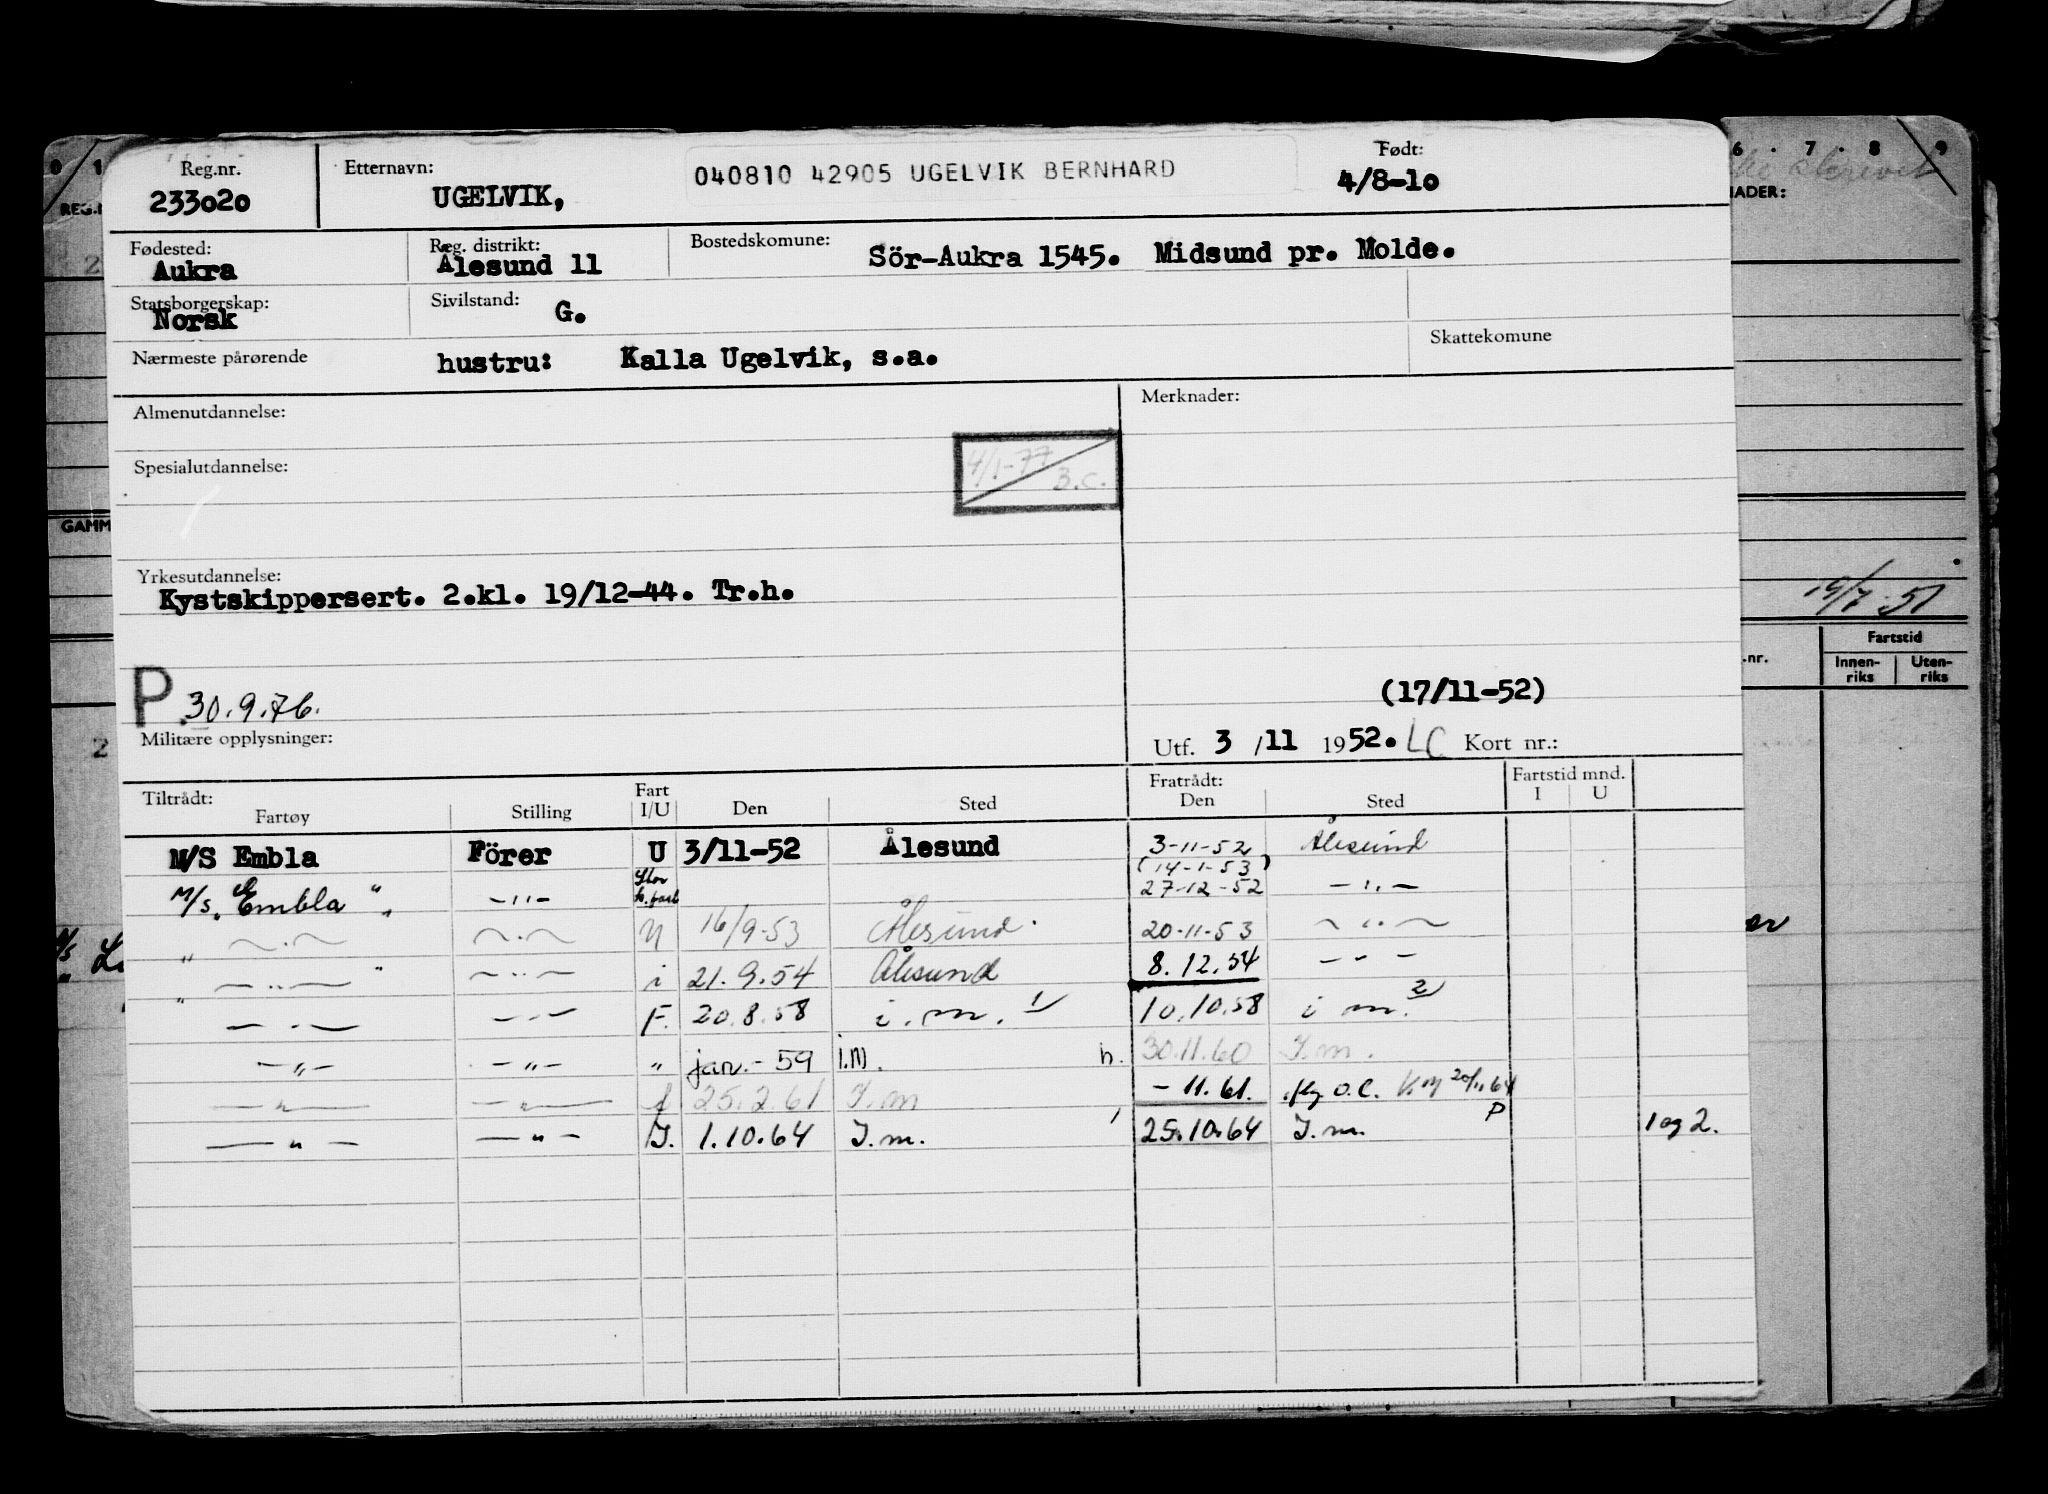 Reg.nr. Etternavn: Født:
233020 UGELVIK, 040810 42905 UGELVIK BERNHARD 4/8-10
Fødested: Reg. distrikt: Bostedskomune:
Aukra Ålesund 11 Sör-Aukra 1545. Midsund pr. Molde.
Statsborgerskap: Sivilstand:
Norsk G.
Skattekomune
Nærmeste pårørende hustru: Kalla Ugelvik, s.a.
Almenutdannelse: Merknader:
4/1-77 B.C.
Spesialutdannelse:
Yrkesutdannelse:
Kystskippersert. 2.kl. 19/12-44. Tr.h.
P. 30.9.76.
(17/11-52)
Militære opplysninger: Utf. 3 /11 1952. LC Kort nr.:
Tiltrådt: Fart Fratrådt: Fartstid mnd.
Fartøy Stilling I/U Den Sted Den Sted I U
M/S Embla Förer U 3/11-52 Ålesund 3-11-52 Ålesund
(14-1-53)
M/s. "Embla" -"- 27-12-52 -"-
-"- -"- N 16/9-53 Ålesund. 20-11-53 -"-
"-"-" -"- i 21.9.54 Ålesund 8.12.54 -"-
"-"- -"- F. 20.8.58 i.m. 1) 10.10.58 i m. 2)
-"- -"- " jan.-59 i.m. h. 30.11.60 I.m.
-"- -"- f. 25.2.61 I.m -11.61. 20/11 64
-"- -"- I. 1.10.64 I.m. 25.10.64 I.m. P 1 og 2.
0 1 6 . 7 . 8 . 9
REG.N
NADER:
GAMM
19/7-51
.nr. Fartstid
Innen-riks Uten-riks